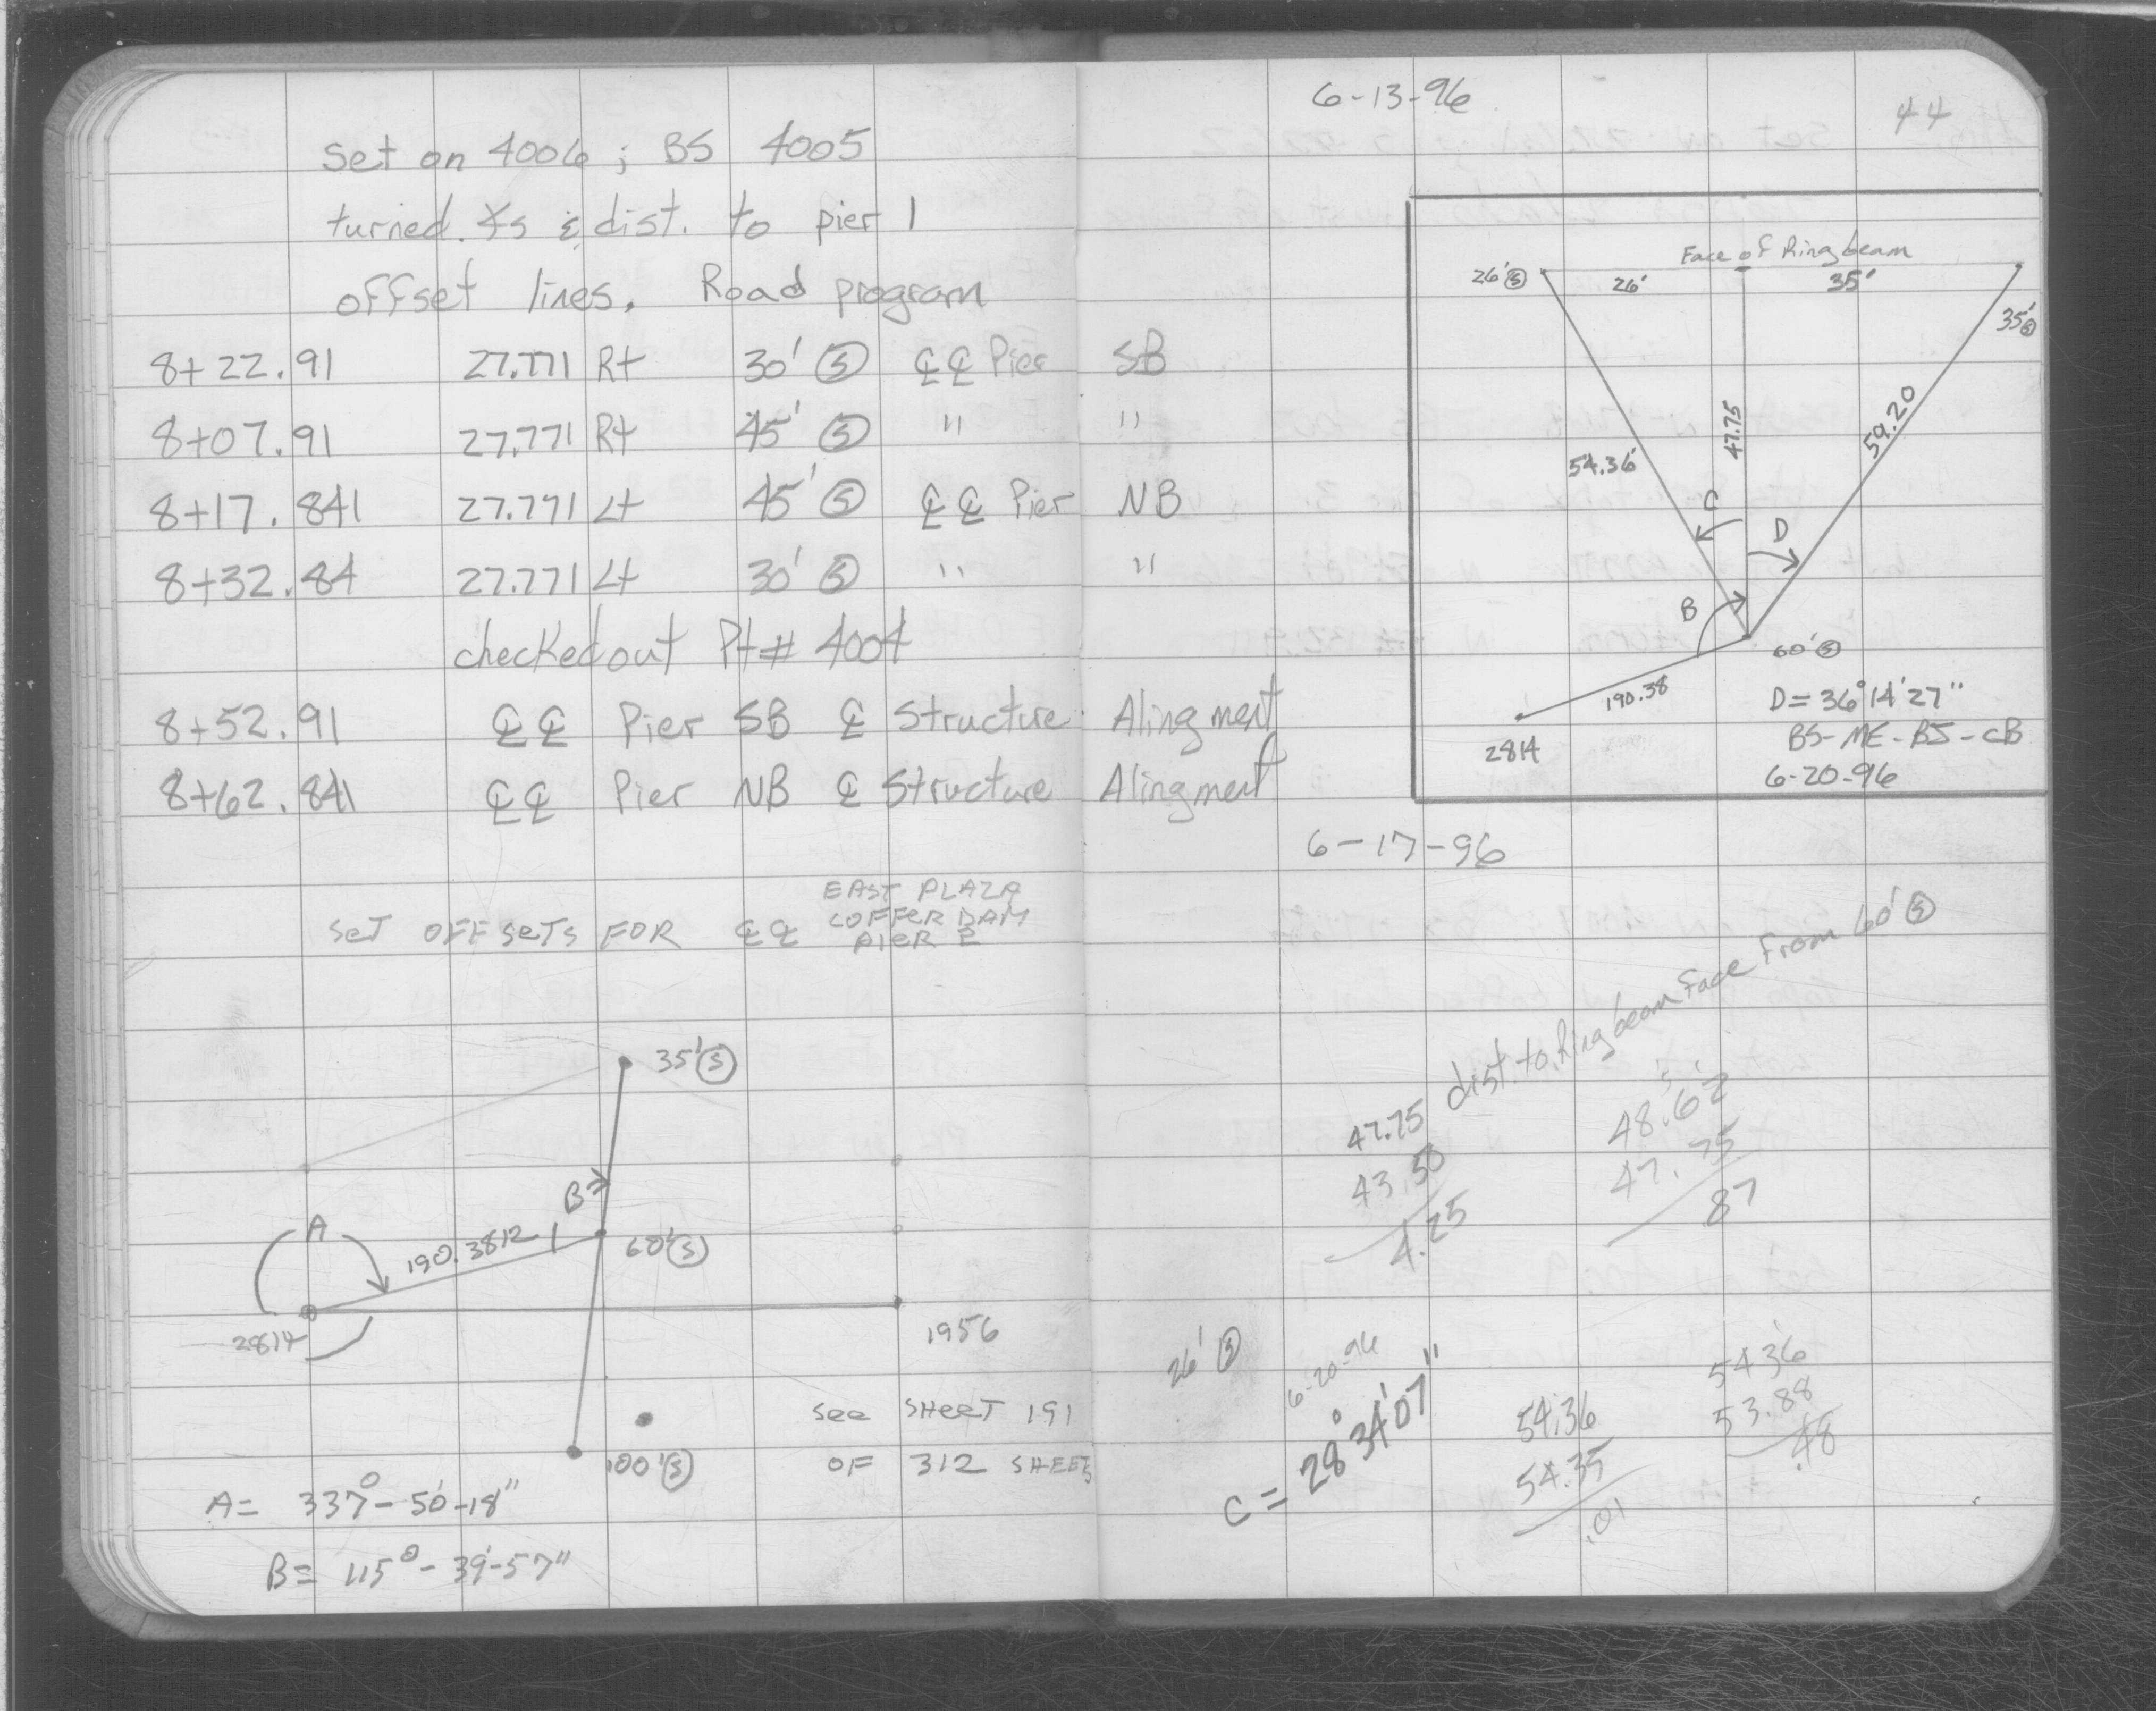 6-13-96
44
Set on 4006 ; BS 4005
turned ∡s & dist. to pier 1
offset lines. Road program
8+22.91 27.771 Rt 30' Ⓢ ℄ ℄ Pier SB
8+07.91 27.771 Rt 45' Ⓢ " "
8+17.841 27.771 Lt 45' Ⓢ ℄ ℄ Pier NB
8+32.84 27.771 Lt 30' Ⓢ " "
checked out Pt# 4004
8+52.91 ℄ ℄ Pier SB ℄ Structure Alingment
8+62.841 ℄ ℄ Pier NB ℄ Structure Alingment
Face of Ring beam
26' Ⓢ 26' 35'
35' Ⓢ
47.75
59.20
54.36'
C
D
B
60' Ⓢ
190.38
2814
D= 36°14'27"
BS-ME-BJ-CB
6-20-96
6-17-96
SET OFFSETS FOR ℄ ℄ EAST PLAZA
COFFER DAM
PIER E
35' Ⓢ
B
A
190.3812
60' Ⓢ
2814
1956
100' Ⓢ
See SHEET 191
OF 312 SHEETS
A= 337°-50'-18"
B= 115°-39'-57"
47.75 dist. to Ring beam Face From 60' Ⓢ
43.50
4.25
48.62
47.75
87
26' Ⓢ
6-20-96
C = 28°34'07"
54.36
54.35
.01
54.36
53.88
.48